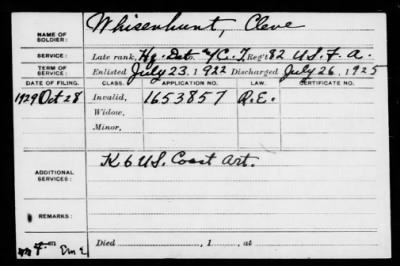 NAME OF SOLDIER: Whisenhunt, Cleve
SERVICE: Late rank, Hq. Det. & C. T. Reg't 82 U.S. F. A.
TERM OF SERVICE: Enlisted July 23, 1922 Discharged July 26, 1925
DATE OF FILING. CLASS. APPLICATION NO. LAW. CERTIFICATE NO.
1929 Oct 28 Invalid, 1653857 R.E.
Widow,
Minor,
ADDITIONAL SERVICES: K 6 U.S. Coast Art.
REMARKS:
Died , 1 , at